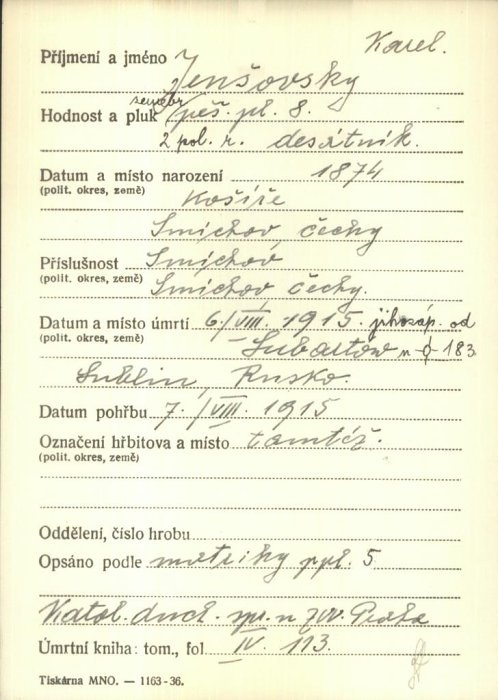 Karel.
Příjmení a jméno Jenšovsky
zeměbr.
Hodnost a pluk pěš. pl. 8.
2 pol. r. desátník.
Datum a místo narození 1874
(polit. okres, země) Košíře
Smíchov, čechy
Příslušnost Smíchov,
(polit. okres, země) Smíchov čechy.
Datum a místo úmrtí 6./VIII. 1915. jihozáp. od
(polit. okres, země) Lubartow 183
Lublin, Rusko.
Datum pohřbu 7./VIII. 1915
Označení hřbitova a místo tamtéž.
(polit. okres, země)
Oddělení, číslo hrobu
Opsáno podle matriky ppl. 5
Katol. duch. spr. u Praha
Úmrtní kniha: tom., fol IV. 113.
Tiskárna MNO. — 1163-36.